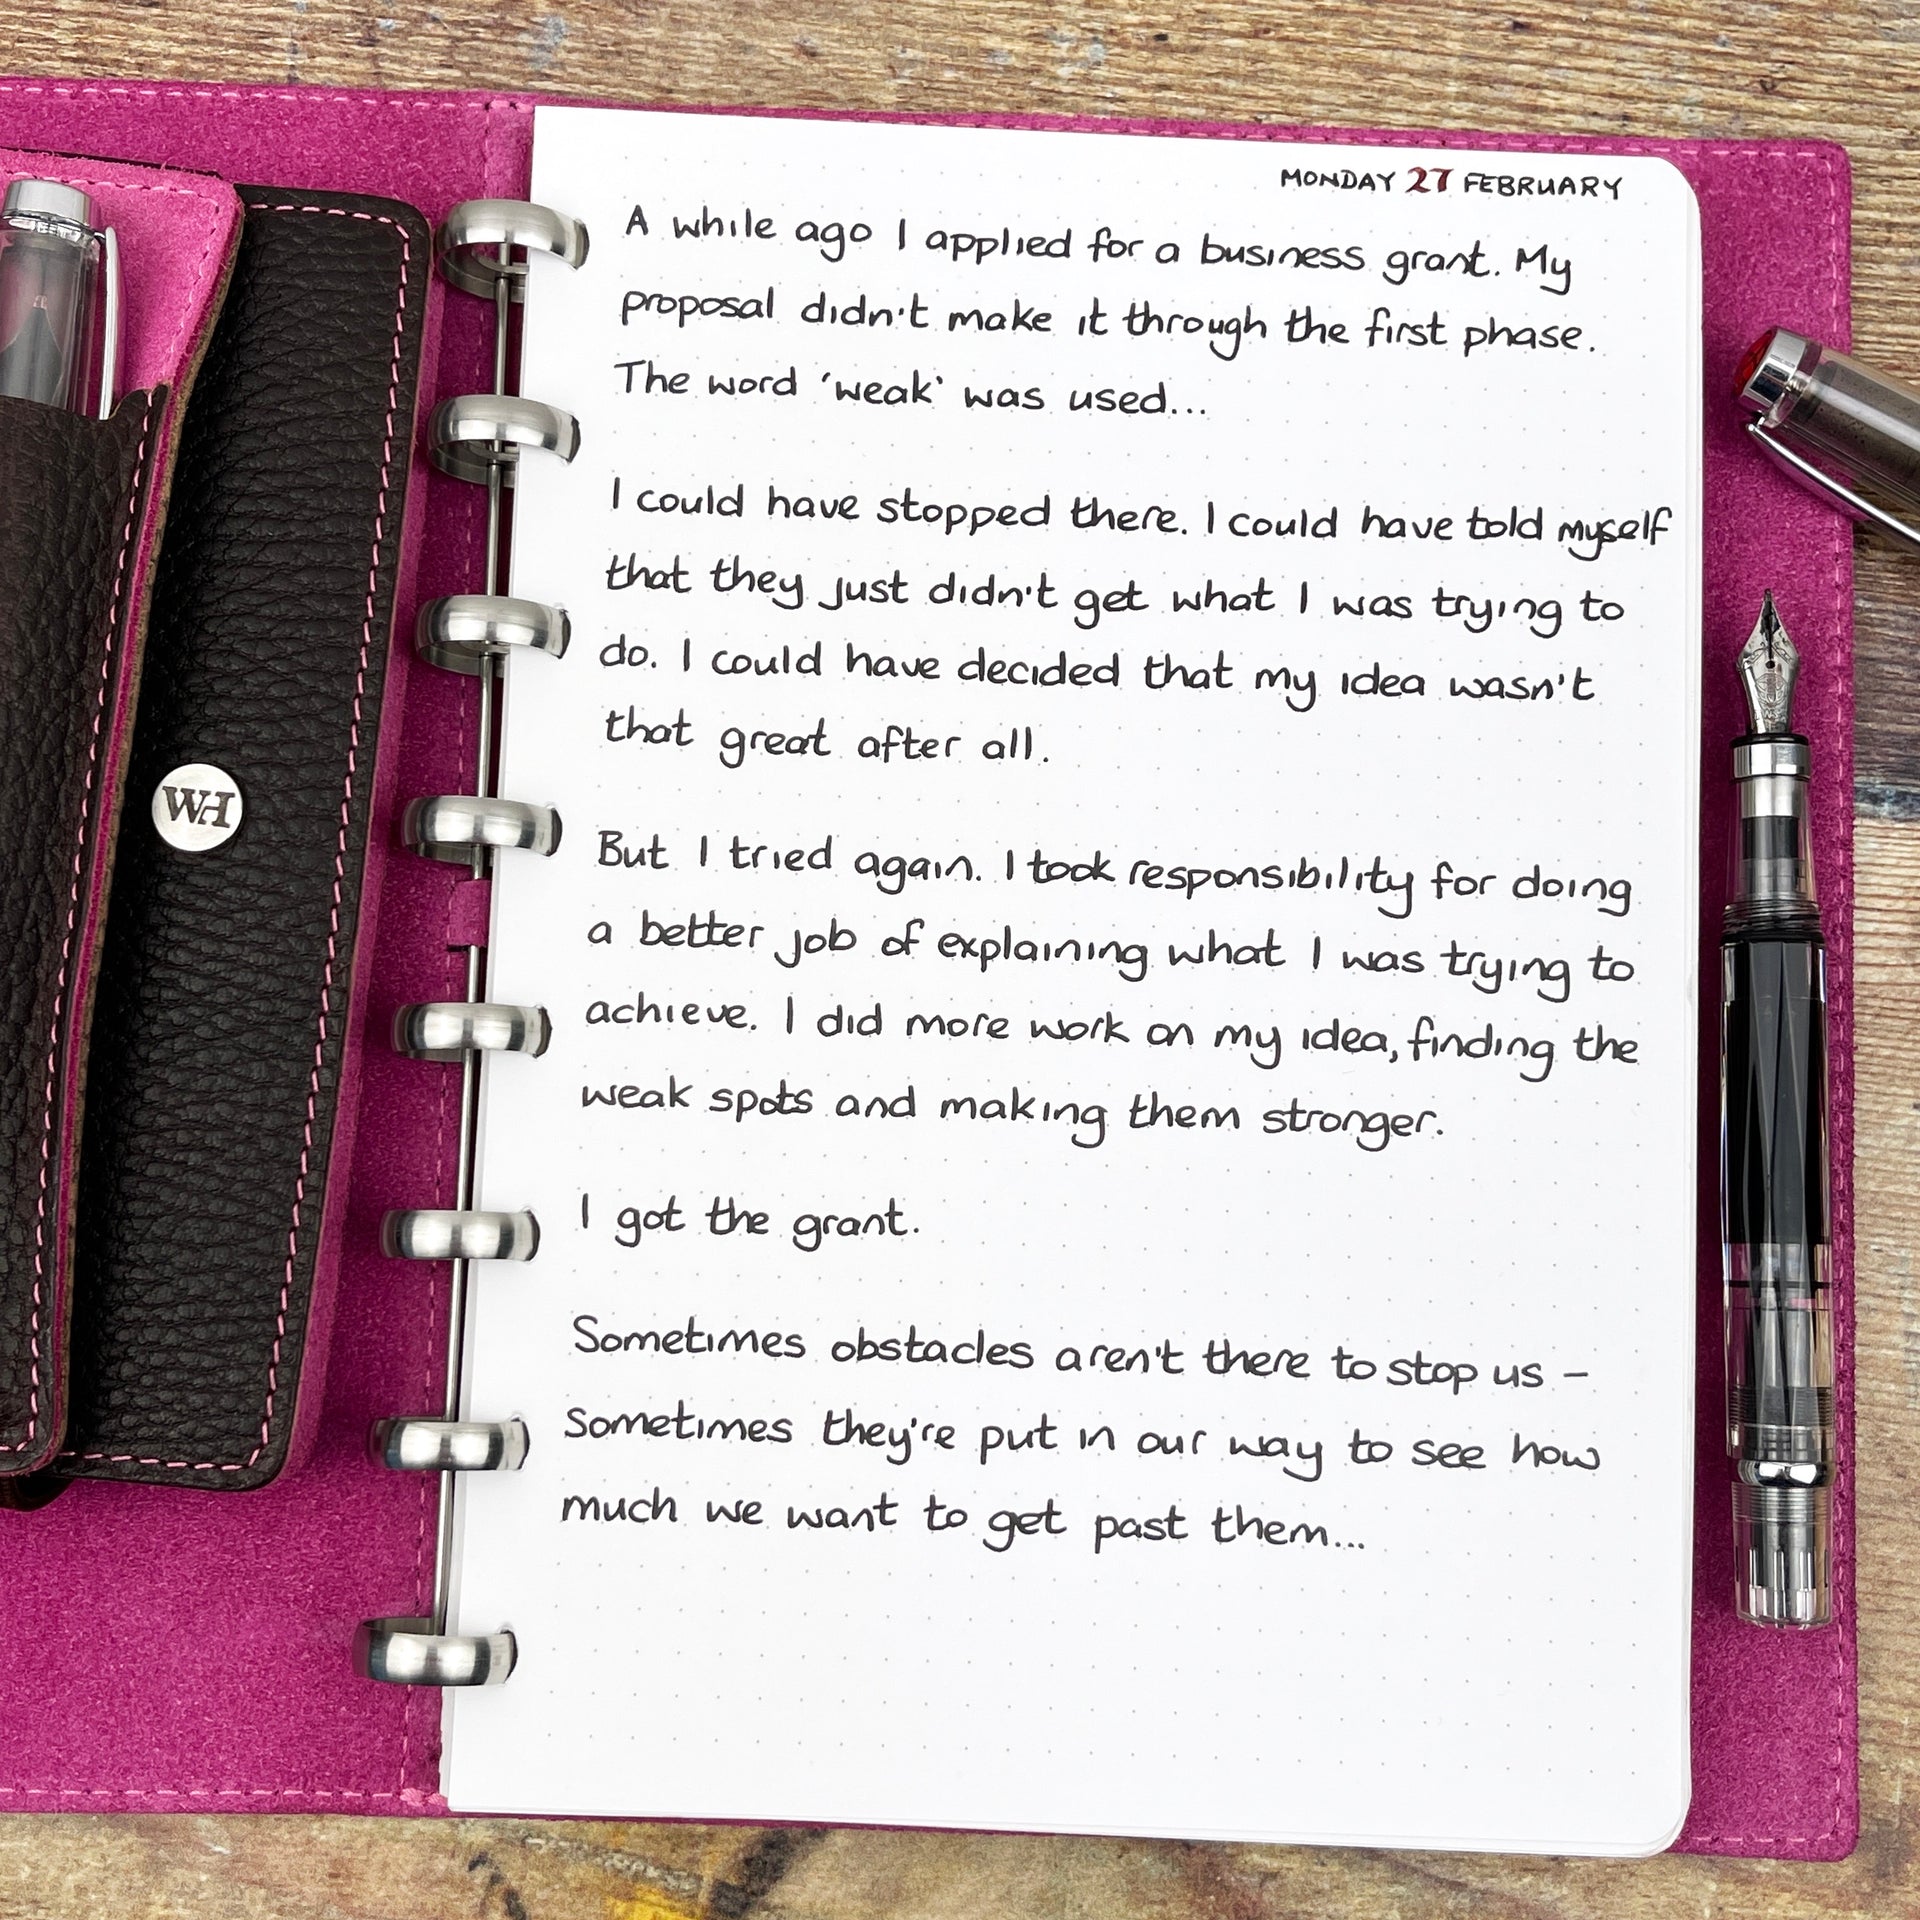 MONDAY 27 FEBRUARY
A while ago I applied for a business grant. My
proposal didn't make it through the first phase.
The word 'weak' was used...
I could have stopped there. I could have told myself
that they just didn't get what I was trying to
do. I could have decided that my idea wasn't
that great after all.
But I tried again. I took responsibility for doing
a better job of explaining what I was trying to
achieve. I did more work on my idea, finding the
weak spots and making them stronger.
I got the grant.
Sometimes obstacles aren't there to stop us -
Sometimes they're put in our way to see how
much we want to get past them...
WH